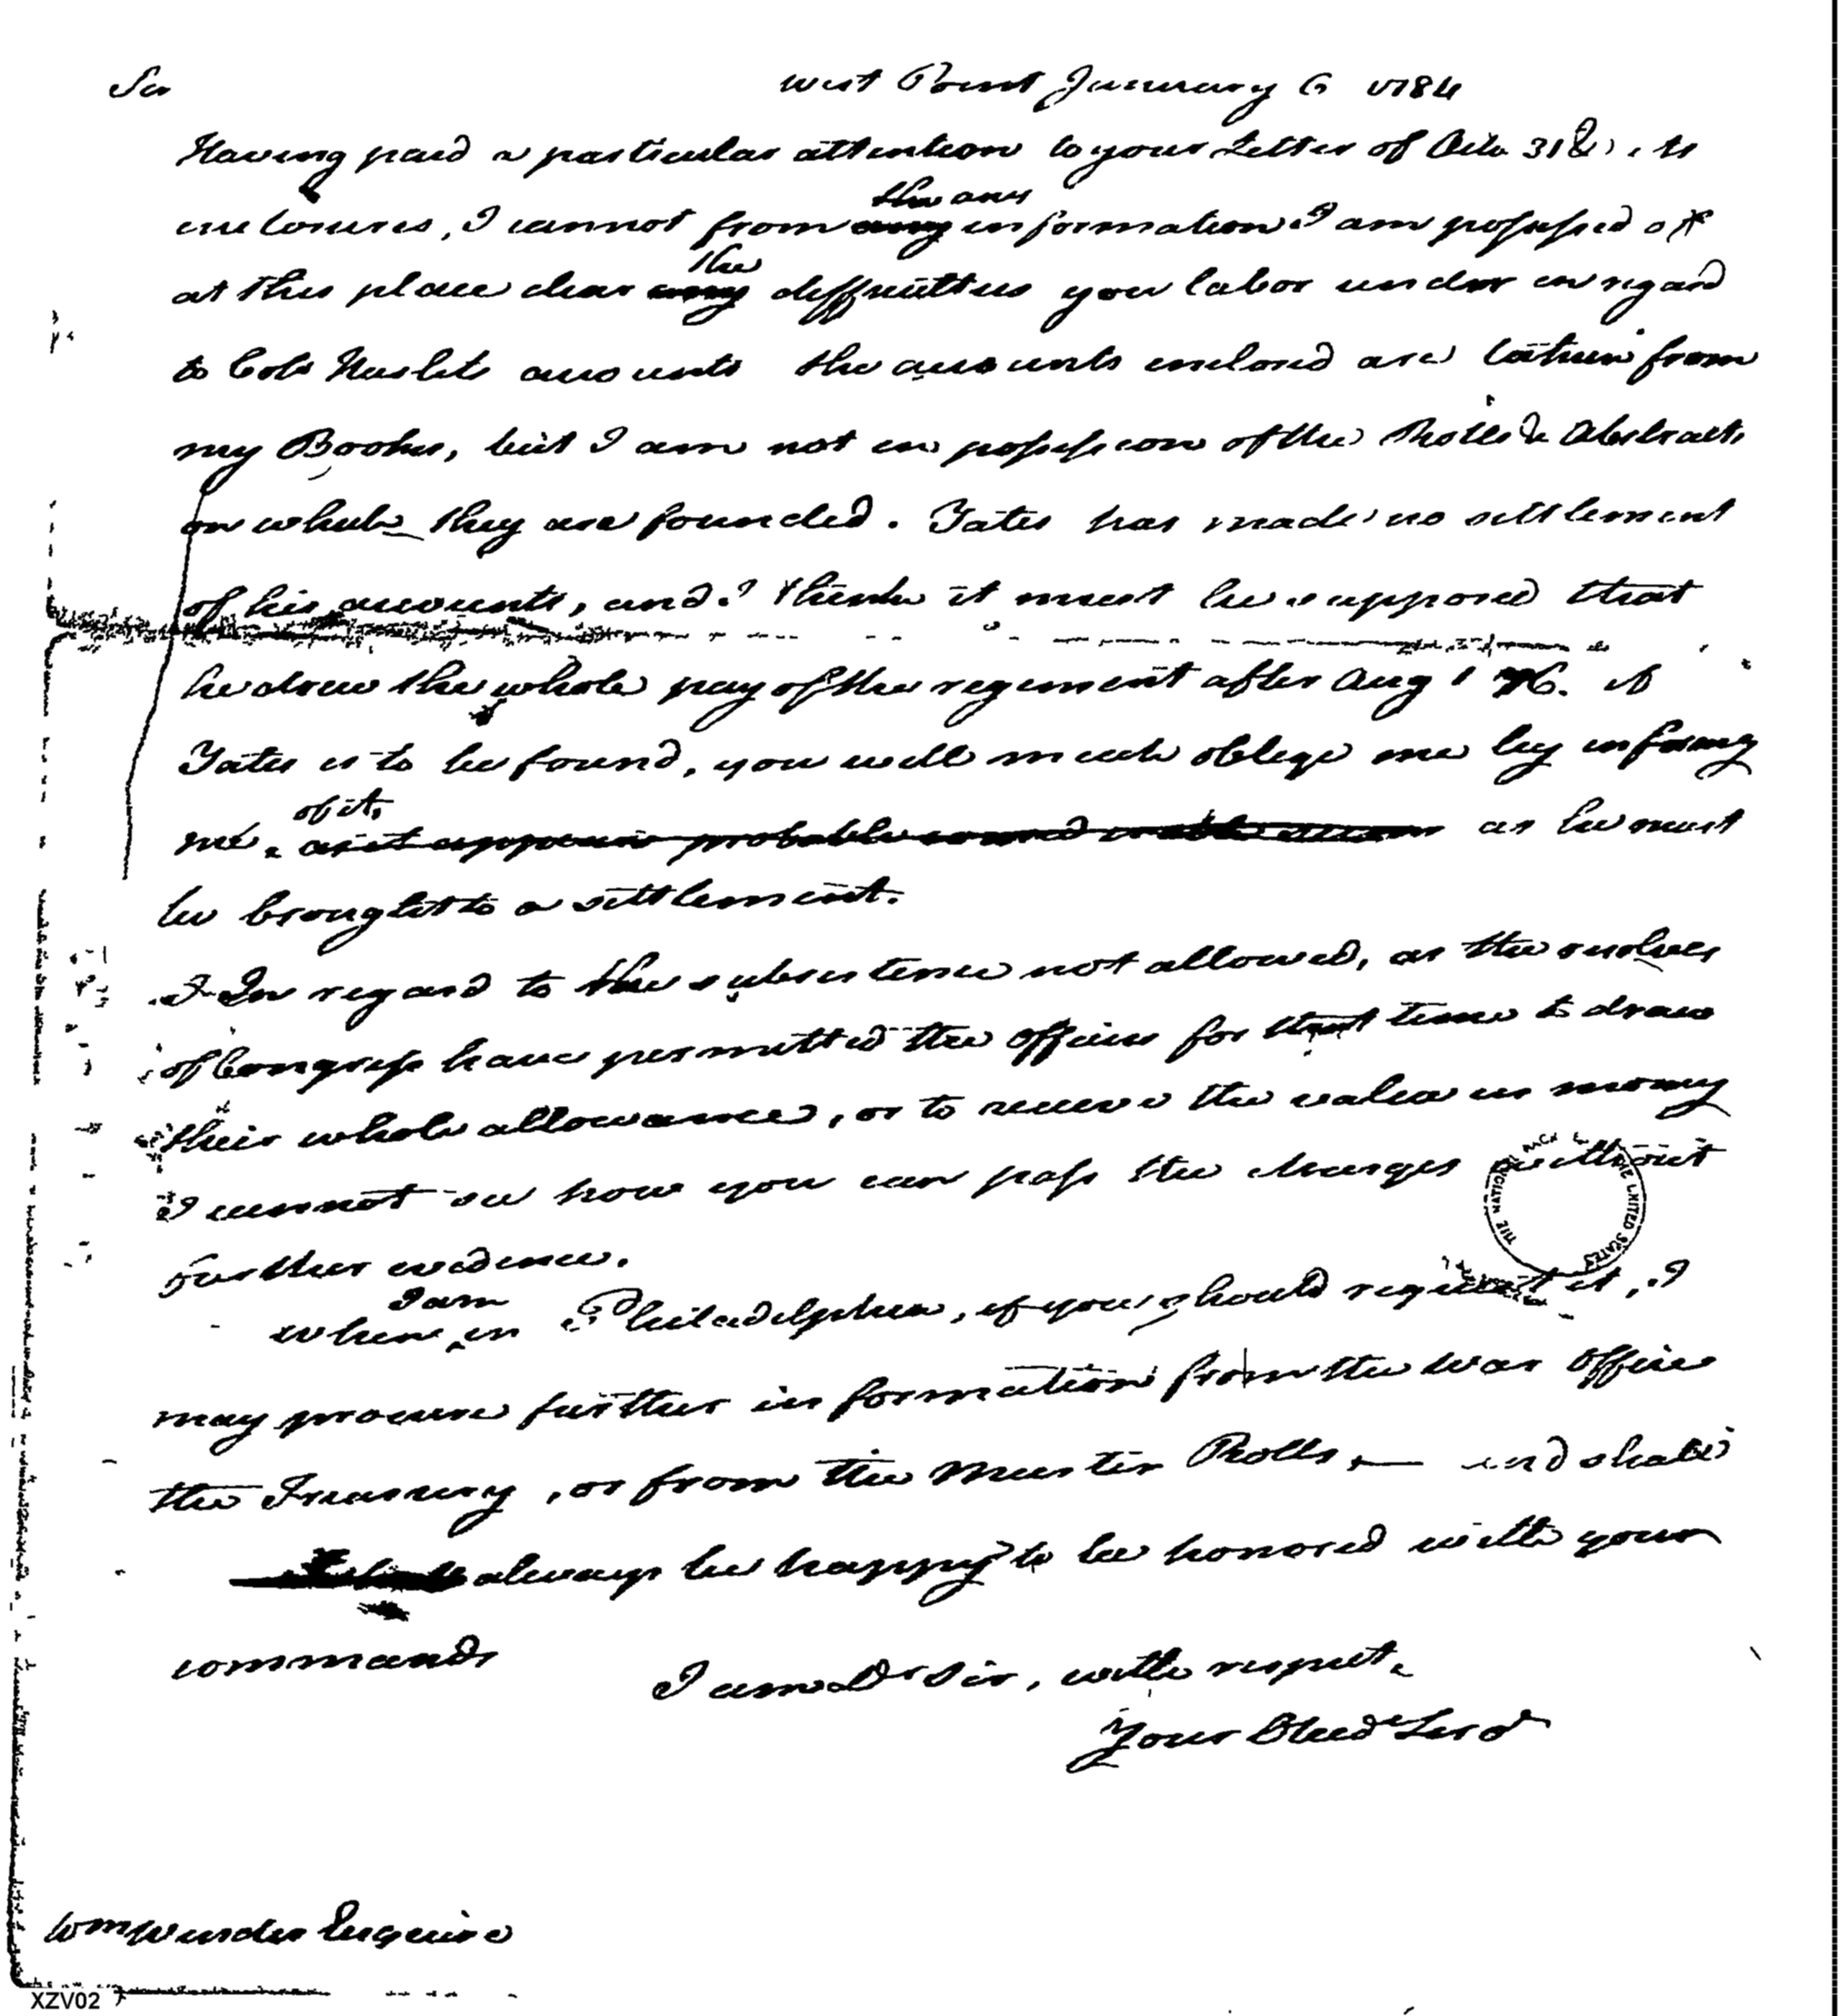 Sir West Point January 6 1784
Having paid a particular attention to your Letter of Octo 31 & its
enclosures, I cannot from any the any information I am possessed of
at this place clear any the difficulties you labor under in regard
to Colo Haslets accounts the accounts enclosed are taken from
my Books, but I am not in possession of the Rolls & Abstracts
on which they are founded. Yates has made no settlement
of his accounts, and I think it must be supposed that
he drew the whole pay of the regiment after Aug 1 76. if
Yates is to be found, you will much oblige me by informg
me of it, as it appears probable as he must
be brought to a settlement.
In regard to the subsistence not allowed, as the resolves
of Congress have permitted the officers for that time to draw
their whole allowance, or to receive the value in money
I cannot see how you can pass the charges without
further evidence.
when I am in Philadelphia, if you should request it, I
may procure further information from the War Office
the Treasury, or from the Muster Rolls, — and shall
always be happy to be honored with your
commands
I am Dr Sir, with respect,
Your Obed Serv
Wm Winder Esquire
THE NATIONAL ARCHIVES OF THE UNITED STATES
XZV02